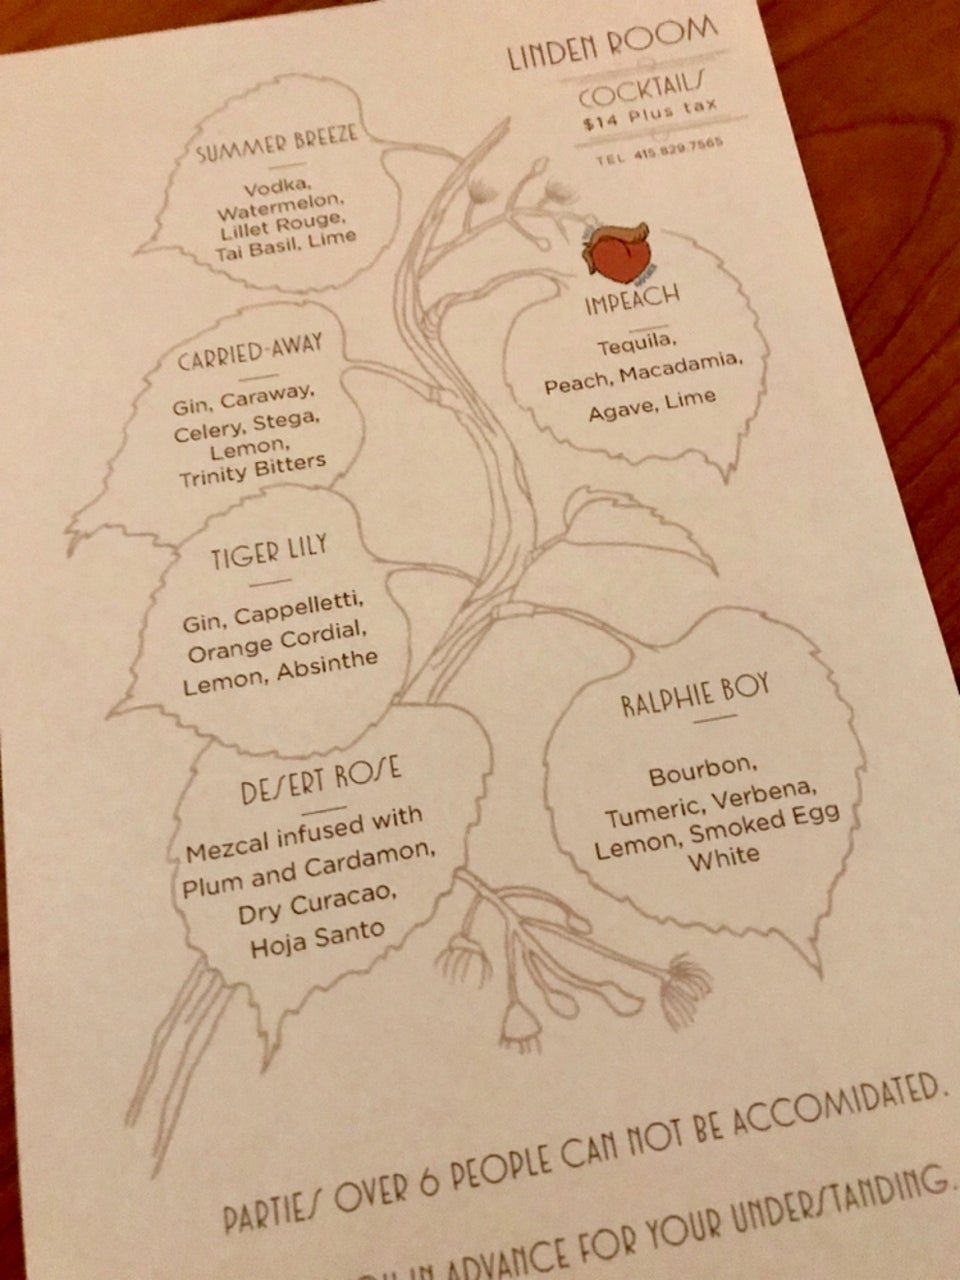 LINDEN ROOM
COCKTAILS
$14 Plus tax
TEL 415.829.7565
SUMMER BREEZE
Vodka,
Watermelon,
Lillet Rouge,
Tai Basil, Lime
IMPEACH
Tequila,
Peach, Macadamia,
Agave, Lime
CARRIED-AWAY
Gin, Caraway,
Celery, Stega,
Lemon,
Trinity Bitters
TIGER LILY
Gin, Cappelletti,
Orange Cordial,
Lemon, Absinthe
RALPHIE BOY
Bourbon,
Tumeric, Verbena,
Lemon, Smoked Egg
White
DESERT ROSE
Mezcal infused with
Plum and Cardamon,
Dry Curacao,
Hoja Santo
PARTIES OVER 6 PEOPLE CAN NOT BE ACCOMIDATED.
IN ADVANCE FOR YOUR UNDERSTANDING.